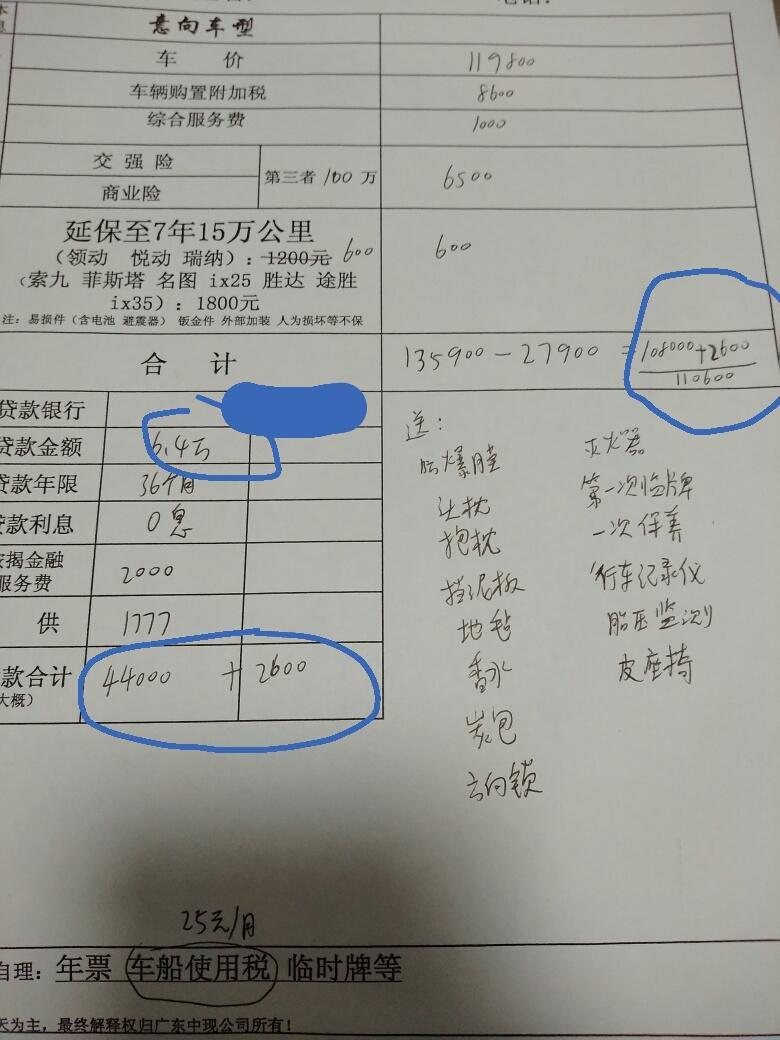 意向车型
车 价 119800
车辆购置附加税 8600
综合服务费 1000
交强险
商业险
第三者100万 6500
延保至7年15万公里
(领动 悦动 瑞纳):1200元 600 600
(索九 菲斯塔 名图 ix25 胜达 途胜
ix35):1800元
注:易损件(含电池 避震器) 钣金件 外部加装 人为损坏等不保
合 计 135900-27900=108000+2600
110600
贷款银行
贷款金额 6.4万
贷款年限 36个月
贷款利息 0息
按揭金融
服务费 2000
供 1777
款合计 44000 + 2600
大概)
送:
防爆膜 灭火器
头枕 第一次临牌
抱枕 一次保养
挡泥板 行车记录仪
地毡 胎压监测
香水 皮座椅
炭包
方向锁
25元/月
自理:年票 车船使用税 临时牌等
天为主,最终解释权归广东中现公司所有!